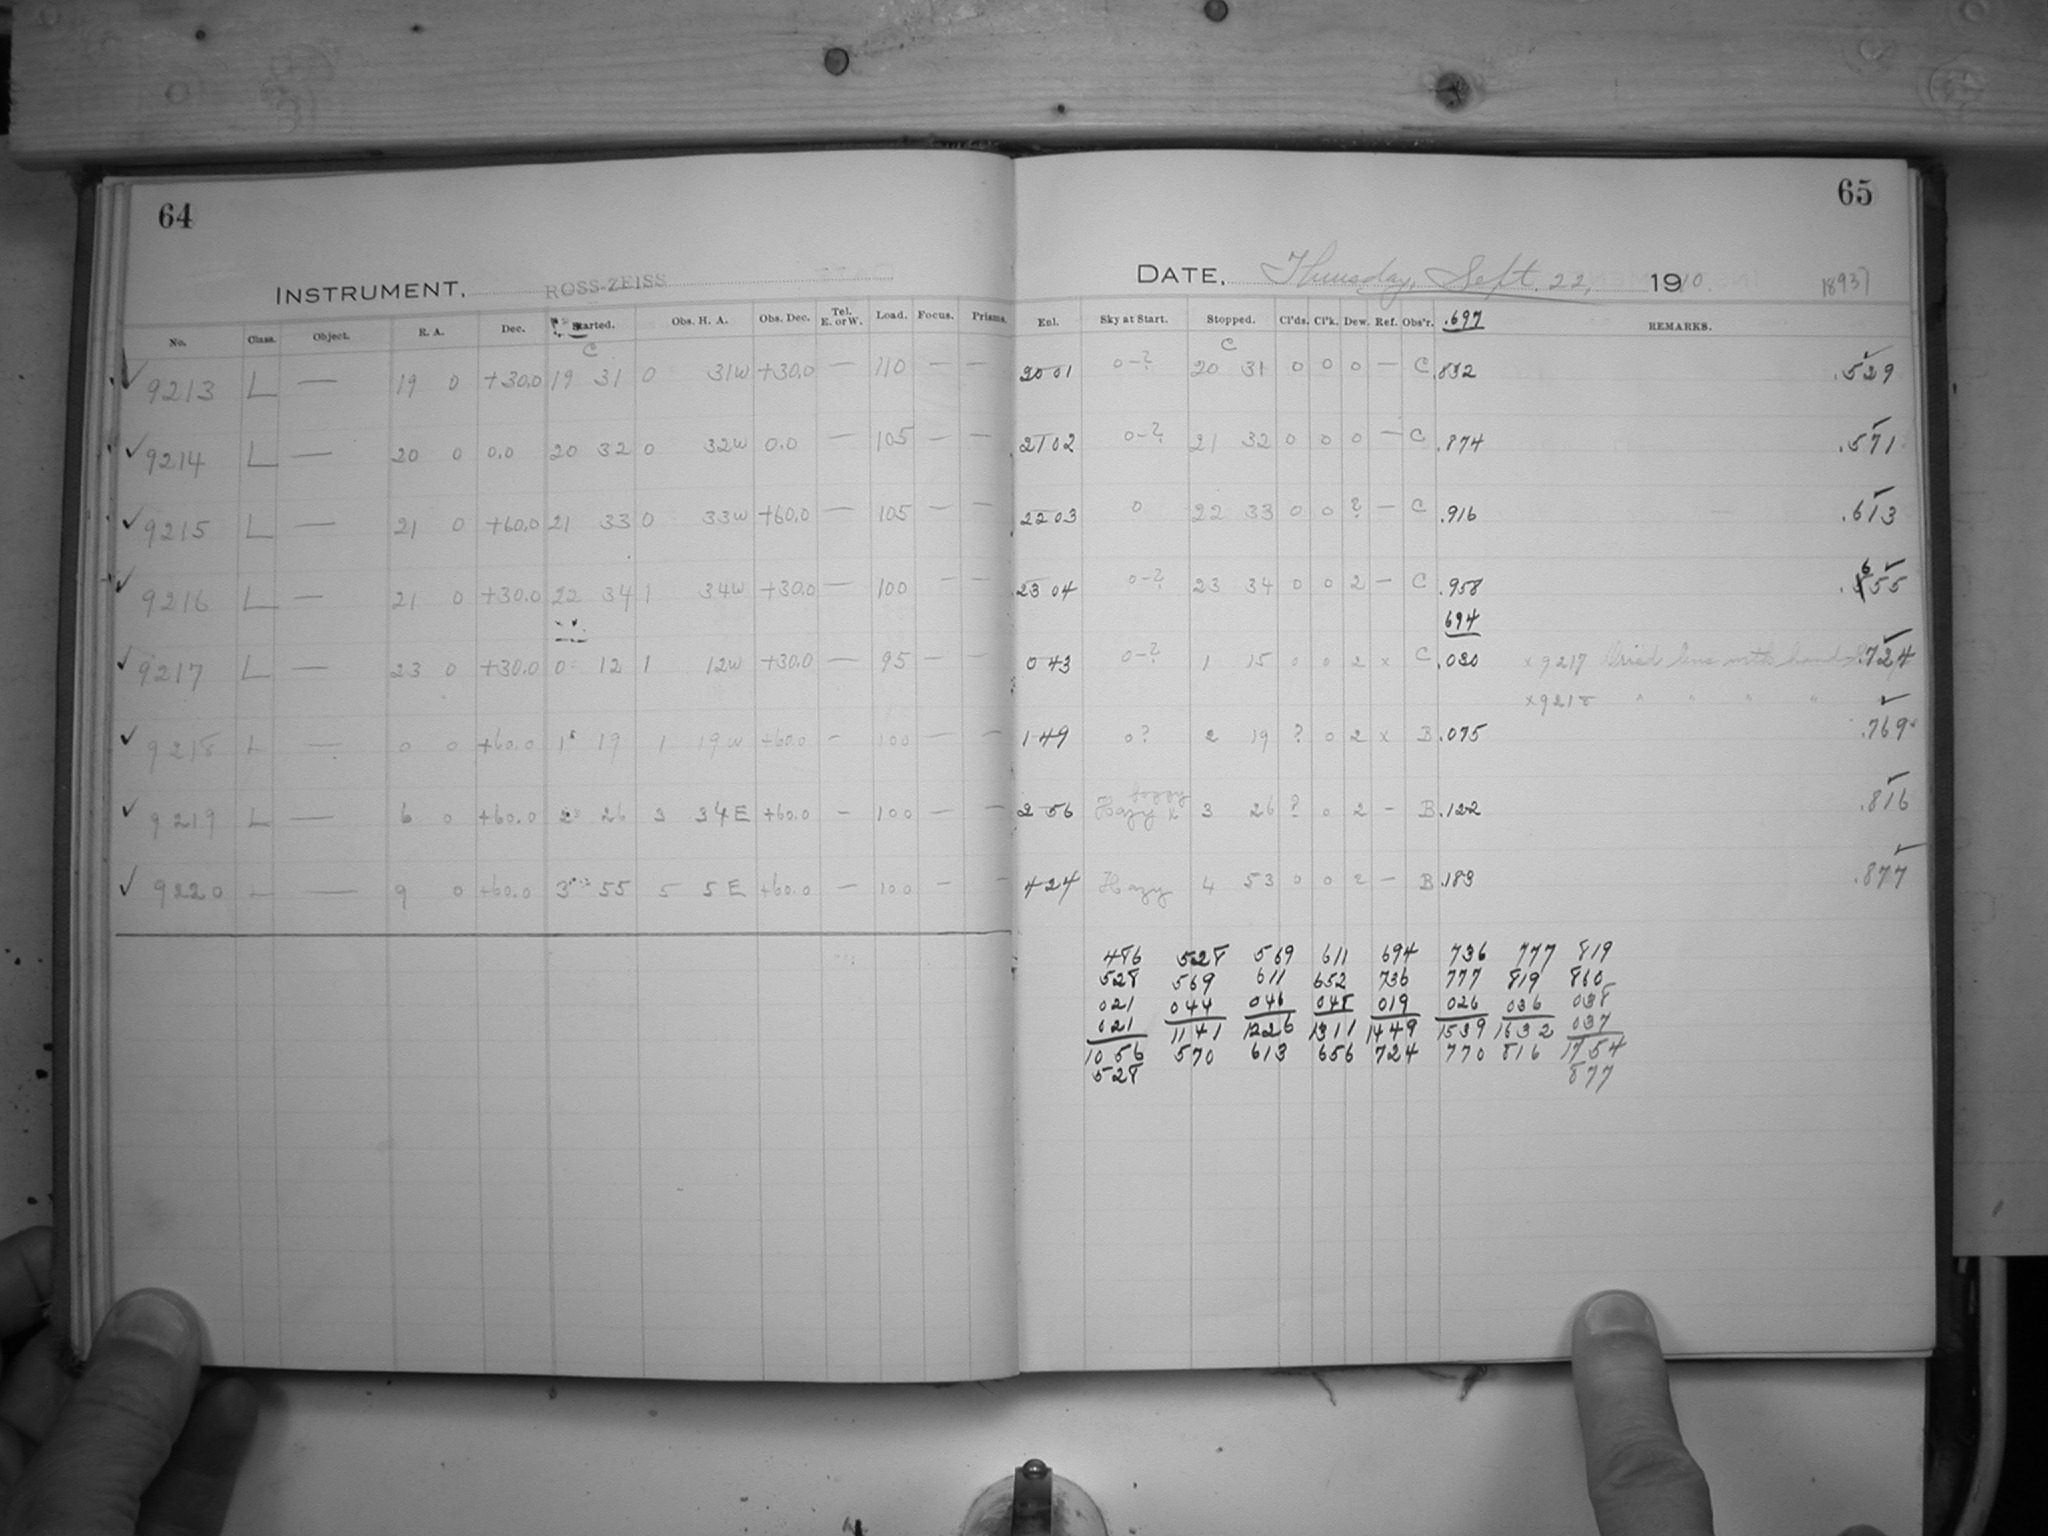 64
INSTRUMENT, ROSS-ZEISS
No. Class. Object. R. A. Dec. Started. Obs. H. A. Obs. Dec. Tel. E. or W. Load. Focus. Prisms.
C
✓ 9213 L — 19 0 +30.0 19 31 0 31W +30.0 — 110 — —
✓ 9214 L — 20 0 0.0 20 32 0 32W 0.0 — 105 — —
✓ 9215 L — 21 0 +60.0 21 33 0 33W +60.0 — 105 — —
✓ 9216 L — 21 0 +30.0 22 34 1 34W +30.0 — 100 — —
✓ 9217 L — 23 0 +30.0 0 12 1 12W +30.0 — 95 — —
✓ 9218 L — 0 0 +60.0 1 19 1 19W +60.0 — 100 — —
✓ 9219 L — 6 0 +60.0 2 26 3 34E +60.0 — 100 — —
✓ 9220 — — 9 0 +60.0 3 55 5 5E +60.0 — 100 — —
65
DATE, Thursday, Sept. 22, 1910. 18937
Enl. Sky at Start. Stopped. Cl'ds. Cl'k. Dew. Ref. Obs'r. .697 REMARKS.
C
20 01 0-? 20 31 0 0 0 — C .832 .529
21 02 0-? 21 32 0 0 0 — C .874 .571
22 03 0 22 33 0 0 ? — C .916 .613
23 04 0-? 23 34 0 0 2 — C .958 .655
694
0 43 0-? 1 15 0 0 2 x C .030 x9217 Dried lens with hand .724
x9218 " " " "
1 49 0? 2 19 ? 0 2 x B .075 .769
foggy
2 56 Hazy x 3 26 ? 0 2 — B .122 .816
4 24 Hazy 4 53 0 0 2 — B .183 .877
486 528 569 611 694 736 777 819
528 569 611 652 736 777 819 860
021 044 046 048 019 026 036 038
021 1141 1226 1311 1449 1539 1632 037
1056 570 613 656 724 770 816 1754
528 877